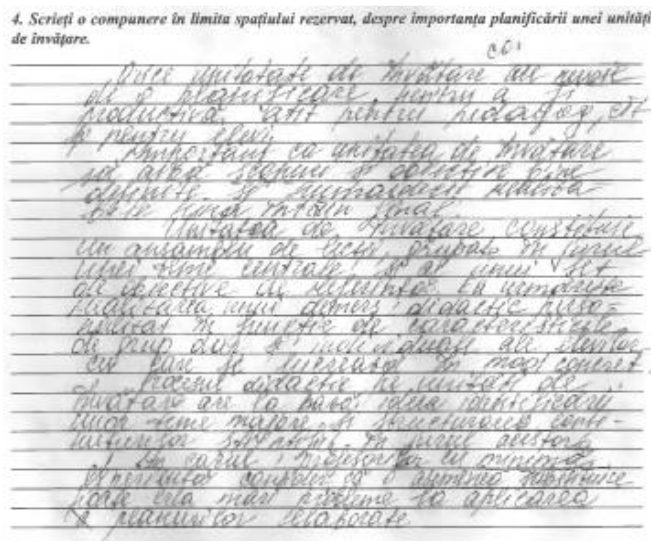 4. Scrieți o compunere în limita spațiului rezervat, despre importanța planificării unei unități
de învățare.
Orice unitatate de învățare are nevoie
de o planificare pentru a fi
productivă, atît pentru pedagog, cît
și pentru elevi.
Important ca unitatea de învățare
să aibă scopuri și obiective bine
definite și numaidecît
este final.
Unitatea de învățare constituie
un ansamblu de lecții, grupate în jurul
unei teme centrale și al unui set
de obiective de referință. Ea urmărește
realizarea unui demers didactic perso-
nalizat în funcție de caracteristicile
de grup dar și individuale ale elevilor
cu care se lucrează în mod concret.
didactic pe unități de
învățare are la bază ideea identificării
unor teme majore și structurarea conți-
nuturilor în jurul acestora.
În cazul profesorilor cu minimă
experiență că o asemenea
poate crea mari probleme la aplicarea
planurilor elaborate